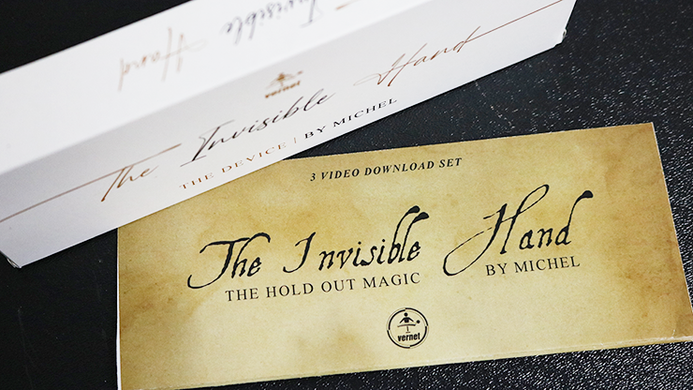 The Invisible Hand
The Invisible Hand
vernet
THE DEVICE | BY MICHEL
3 VIDEO DOWNLOAD SET
The Invisible Hand
THE HOLD OUT MAGIC BY MICHEL
vernet